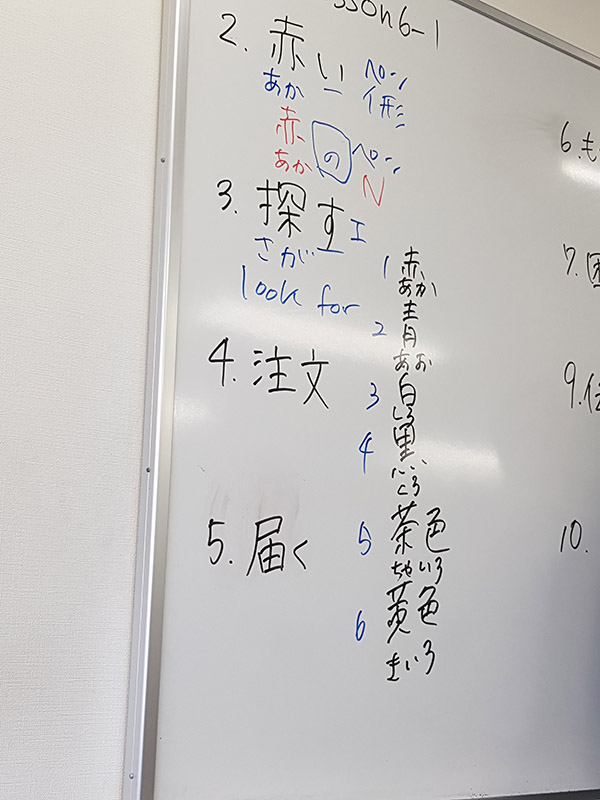 sson 6-1
2. 赤い ペン
あか イ形
赤のペン
あか N
3. 探す I
さが
look for
1 赤
あか
2 青
あお
3 白
しろ
4 黒
くろ
4. 注文
5. 届く
5 茶色
ちゃいろ
6 黄色
きいろ
6. も
7. 困
9. 伝
10.